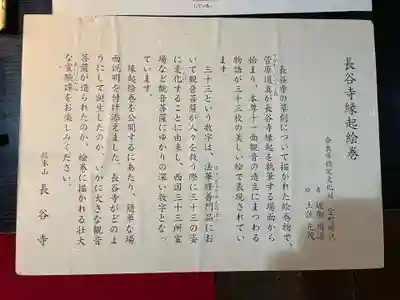 長谷寺縁起絵巻
奈良県指定文化財 室町時代
長谷寺の草創について描かれた絵巻物で、
菅原道真が長谷寺縁起を執筆する場面から
始まり、本尊十一面観音の造立にまつわる
物語が三十三枚の美しい絵で表現されてい
ます
三十三という数字は、法華経普門品にお
いて観音菩薩が人々を救う際に三十三の姿
に変化することに由来し、西国三十三所霊
場など観音菩薩にゆかりの深い数字となっ
ています。
縁起絵巻を公開するにあたり、簡単な場
面説明を付け添えました。長谷寺がどのよ
うにして誕生したのか、いかに大きな観音
菩薩が造られたのか、絵巻に描かれる壮大
な霊験譚をお楽しみください。
総本山 長谷寺